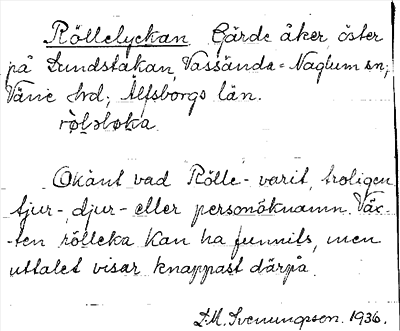 Röllelyckan Gärde åker öster
på Lundstakan, Vassända-Naglum sn;
Väne hrd; Älfsborgs län.
ròləlo̵ka
Okänt vad Rölle- varit, troligen
tjur-, djur- eller personöknamn. Väx-
-ten rölleka kan ha funnits, men
uttalet visar knappast därpå.
D.M. Svenungsson. 1936.